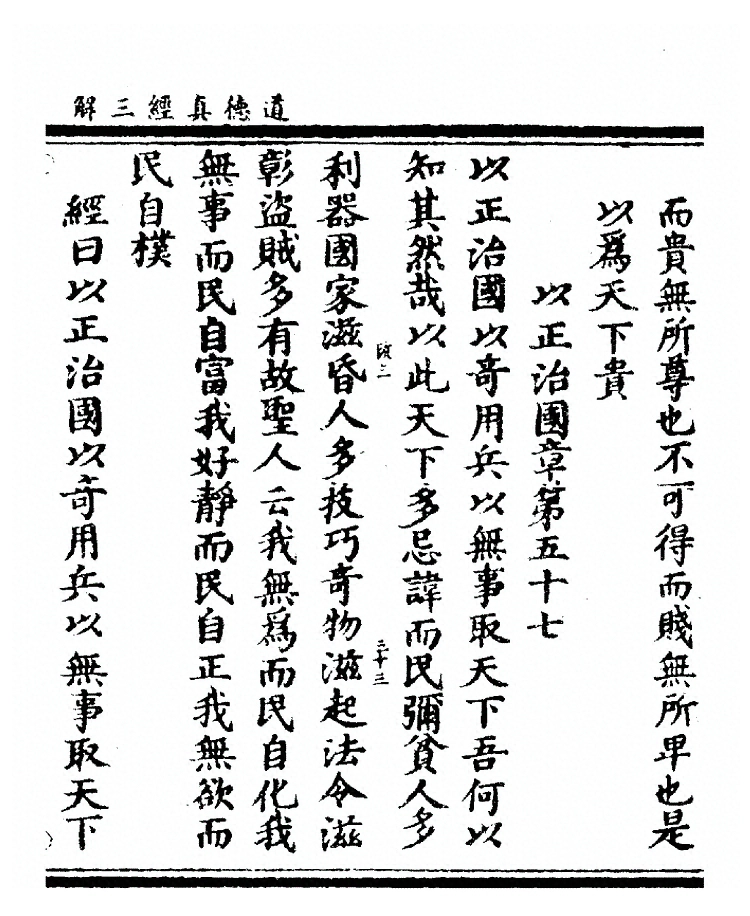 道德真經三解
而貴無所尊也不可得而賤無所卑也是
以爲天下貴
以正治國章第五十七
以正治國以奇用兵以無事取天下吾何以
知其然哉以此天下多忌諱而民彌貧人多
三十三
利器國家滋昏人多技巧奇物滋起法令滋
彰盜賊多有故聖人云我無爲而民自化我
無事而民自富我好靜而民自正我無欲而
民自樸
經曰以正治國以奇用兵以無事取天下